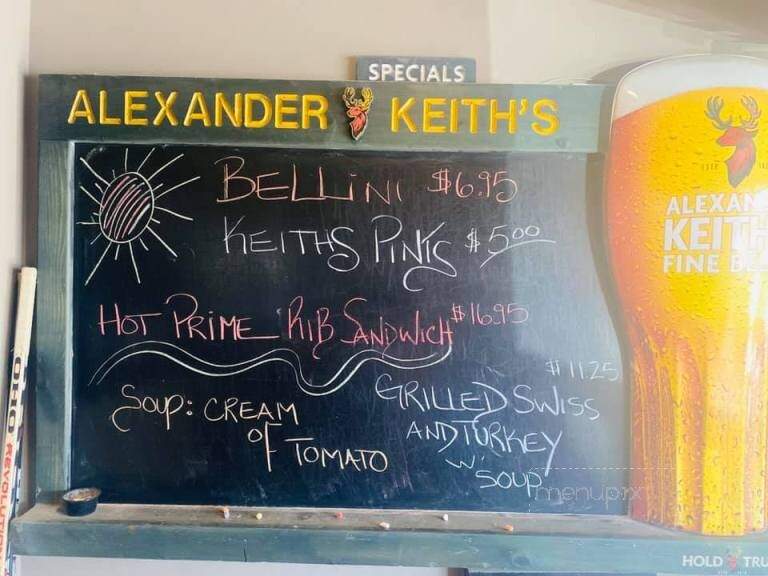 SPECIALS
ALEXANDER KEITH'S
BELLINI $6.95
KEITHS PINTS $5.00
HOT PRIME RIB SANDWICH $16.95
SOUP: CREAM
OF TOMATO
$11.25
GRILLED SWISS
AND TURKEY
W/ SOUP
menupix
ALEXAN
KEITH
FINE BE
HOLD TRU
OHO REVOLUTION